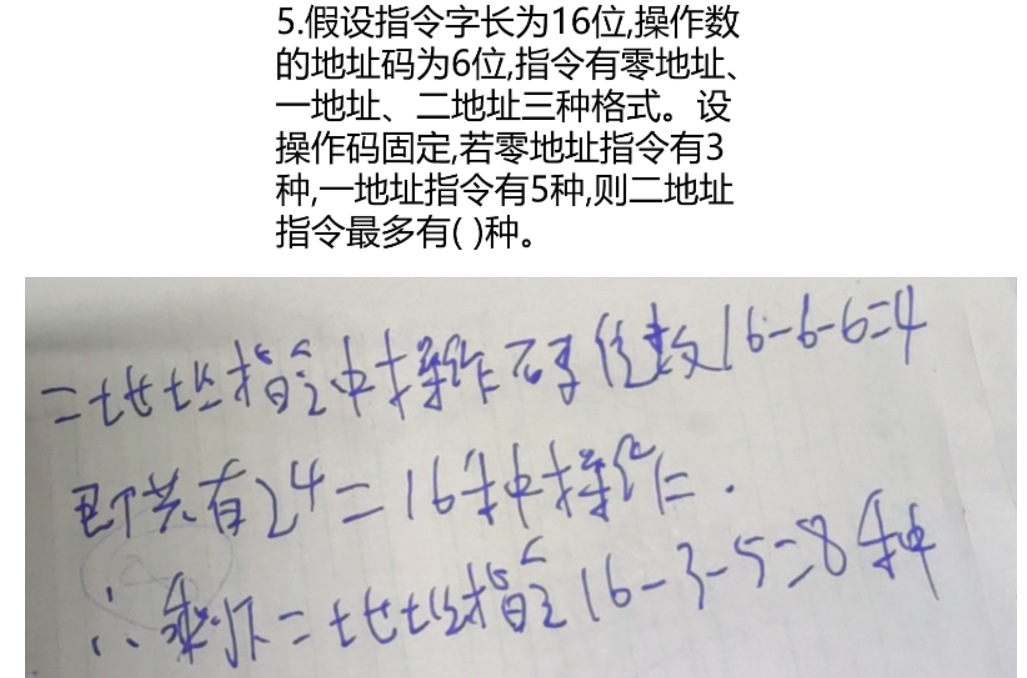 5.假设指令字长为16位,操作数
的地址码为6位,指令有零地址、
一地址、二地址三种格式。设
操作码固定,若零地址指令有3
种,一地址指令有5种,则二地址
指令最多有( )种。
二地址指令中操作码位数16-6-6=4
即共有2⁴=16种操作.
∴剩下二地址指令16-3-5=8种